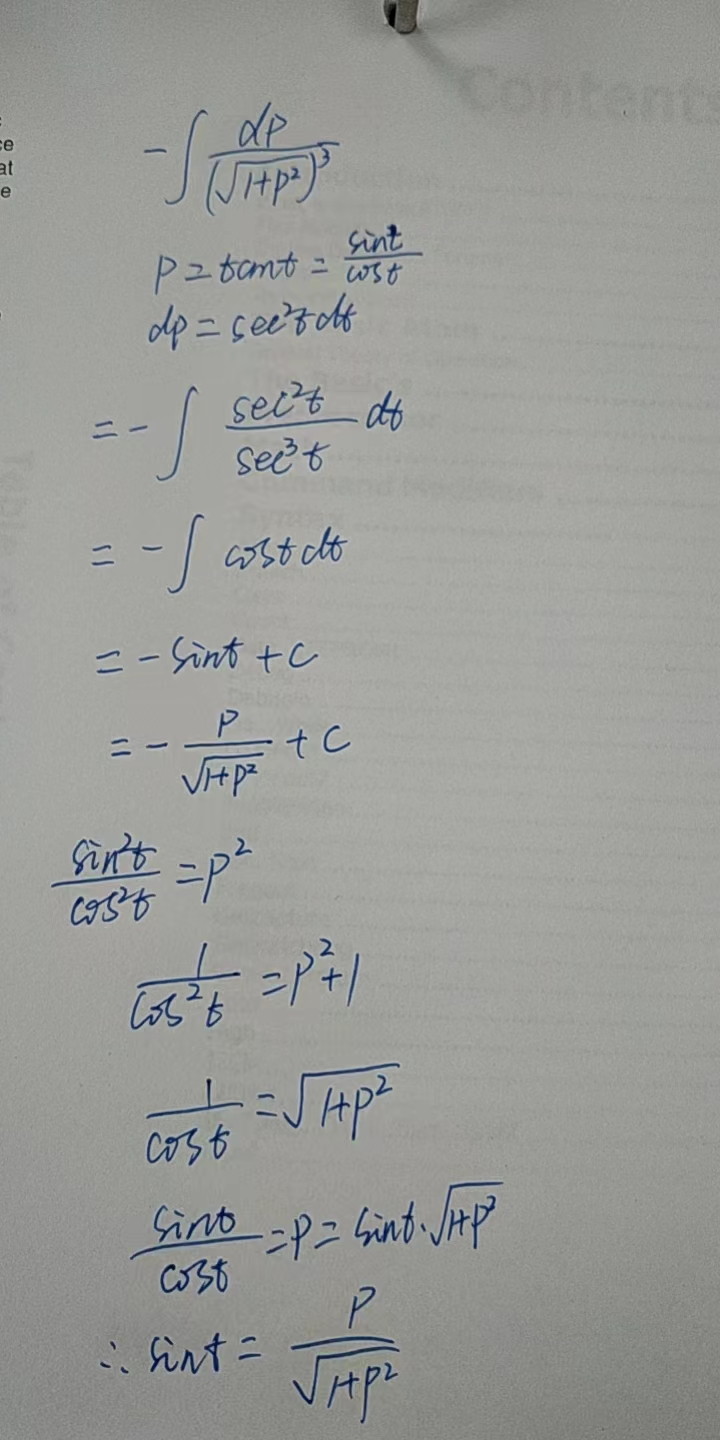 Contents
ce
at
e
-∫ dp/(√(1+p²))³
p = tant = sint/cost
dp = sec²t dt
= -∫ sec²t/sec³t dt
= -∫ cost dt
= -sint + c
= - p/√(1+p²) + c
sin²t/cos²t = p²
1/cos²t = p²+1
1/cost = √(1+p²)
sint/cost = p = sint·√(1+p²)
∴ sint = p/√(1+p²)